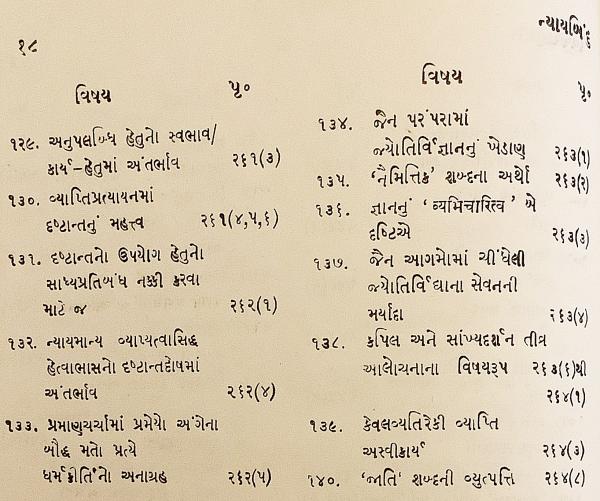 ન્યાયબિંદુ
૧૮
વિષય પૃ૦
૧૨૯. અનુપલબ્ધિ હેતુનો સ્વભાવ/
કાર્ય-હેતુમાં અંતર્ભાવ ૨૬૧(૩)
૧૩૦. વ્યાપ્તિપ્રત્યાયનમાં
દષ્ટાન્તનું મહત્ત્વ ૨૬૧(૪,૫,૬)
૧૩૧. દષ્ટાન્તનો ઉપયોગ હેતુનો
સાધ્યપ્રતિબંધ નક્કી કરવા
માટે જ ૨૬૨(૧)
૧૩૨. ન્યાયમાન્ય વ્યાપ્યત્વાસિદ્ધ
હેત્વાભાસનો દષ્ટાન્તદોષમાં
અંતર્ભાવ ૨૬૨(૪)
૧૩૩. પ્રમાણચર્ચામાં પ્રમેયો અંગેના
બૌદ્ધ મતો પ્રત્યે
ધર્મકીર્તિનો અનાગ્રહ ૨૬૨(૫)
વિષય પૃ૦
૧૩૪. જૈન પરંપરામાં
જ્યોતિર્વિજ્ઞાનનું ખેડાણ ૨૬૩(૧)
૧૩૫. ‘નૈમિત્તિક’ શબ્દના અર્થો ૨૬૩(૨)
૧૩૬. જ્ઞાનનું ‘વ્યભિચારિત્વ’ એ
દષ્ટિએ ૨૬૩(૩)
૧૩૭. જૈન આગમોમાં ચીંધેલી
જ્યોતિર્વિદ્યાના સેવનની
મર્યાદા ૨૬૩(૪)
૧૩૮. કપિલ અને સાંખ્યદર્શન તીવ્ર
આલોચનાના વિષયરૂપ ૨૬૩(૬)થી
૨૬૪(૧)
૧૩૯. કેવલવ્યતિરેકી વ્યાપ્તિ
અસ્વીકાર્ય ૨૬૪(૩)
૧૪૦. ‘જાતિ’ શબ્દની વ્યુત્પત્તિ ૨૬૪(૮)